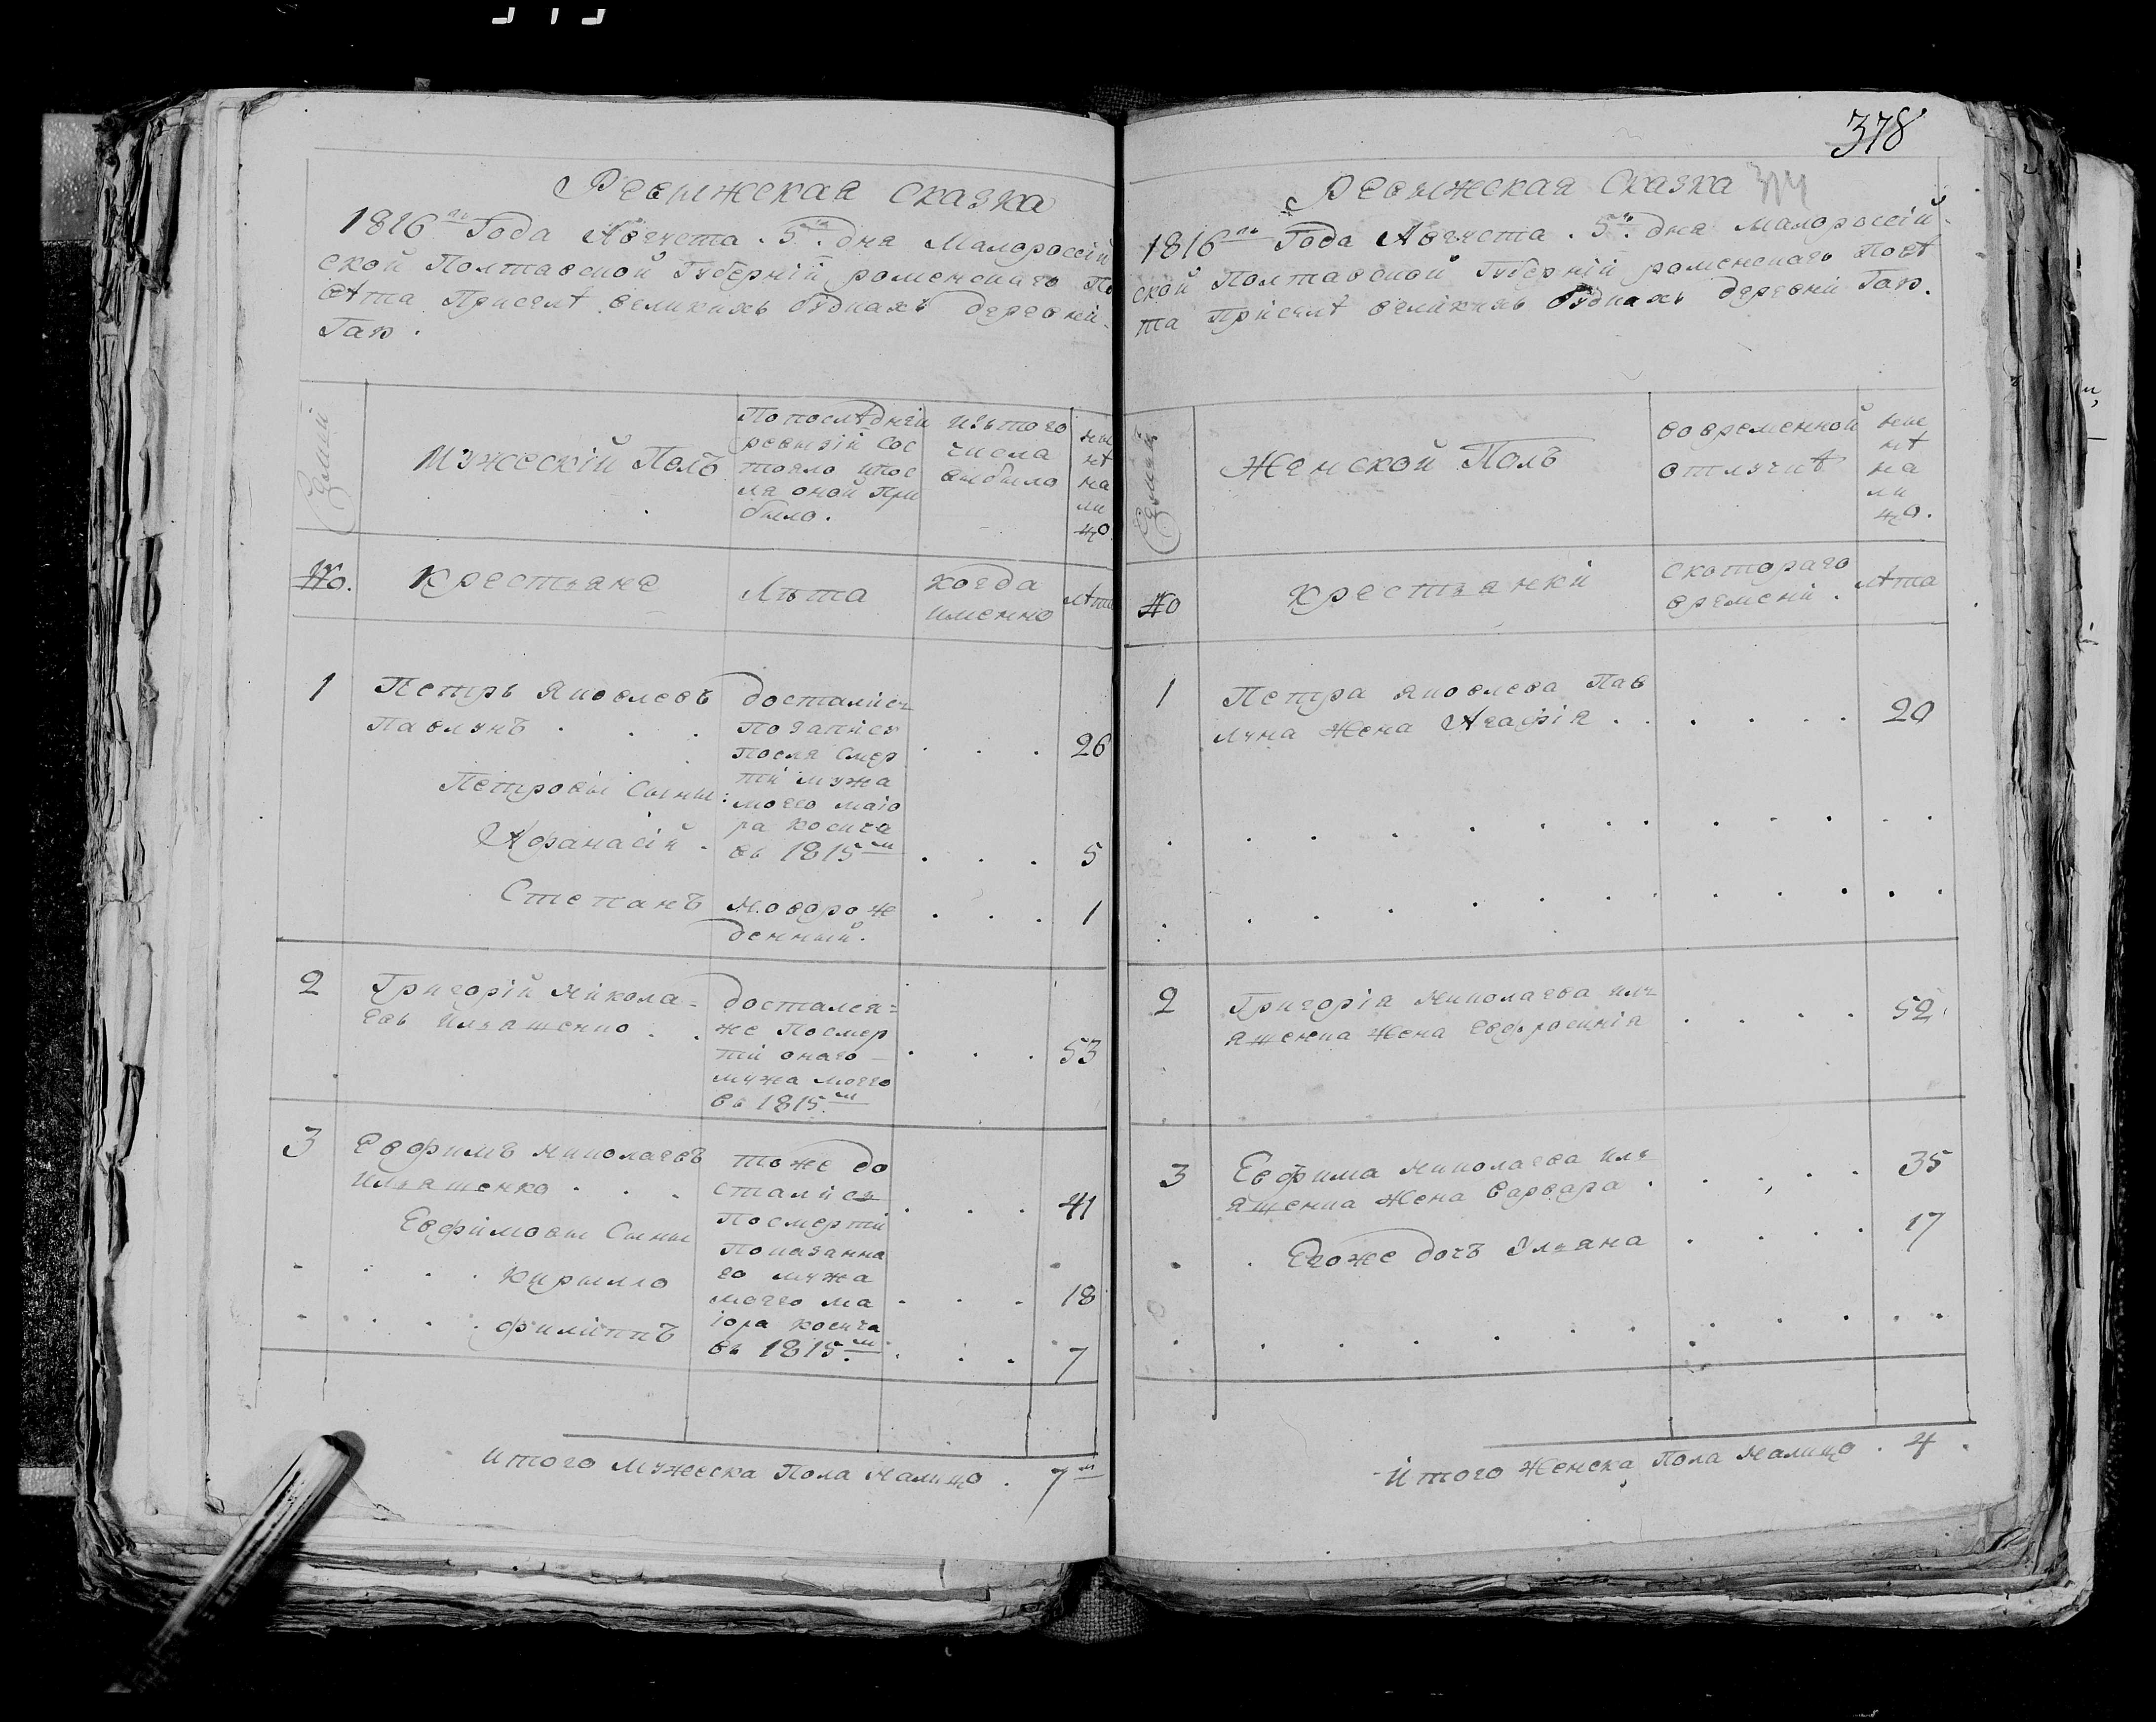 Ревыжская сказка
1816го Года Августа 5го дня Малороссій
ской Полтавской Губерній роменскаго По
ѣта Приселѣ великихъ будкахъ деревнѣ
Гаю.
Семьи
Мужескій Полъ
Попослѣдней
ревизій сос
тояло ипос
ля оной При
было.
Изътого
числа
выбыло
ны
нѣ
на
ли
цо
No.
Крестьяне
Лѣта
когда
именно
лѣта
1
Петръ Яковлевъ
Павлунъ . . .
досталися
По запису
Посля смер
ти мужа
моего маіо
ра Косича
въ 1815м
26
Петровы Сыны:
Афанасій . 5
Степанъ
Новорож
денный.
1
2
Григорій Никола-
евъ Ильяшенко . .
Достался=
же Посмер
ти онаго
мужа моего
въ 1815м
53
3
Евфимъ Николаевъ
Ильяшенко . . .
тоже до
стались
Посмерти
Показанна
го мужа
моего ма
іора Косича
въ 1815м
41
Евфимовы Сыны
Кирилло 18
Филиппъ 7
Итого мужеска Пола налицо . 7м
378
Ревыжская Сказка
1816го Года Августа . 5го дня малороссій-
ской Полтавской Губерній роменскаго Повѣ
та Приселѣ великихъ будкахъ деревнѣ Гаю.
Семьи
Женской Полъ
вовременной
отлучкѣ
ны
нѣ
на
ли
цо.
No
Крестьянки
скотораго
времени .
лѣта
1
Петра Яковлева Пав
луна Жена Агафія . . . . . 20
2
Григорія Николаева Иль
яшенка Жена Евфросинія . . . . 52
3
Евфима Николаева Иль
яшенка Жена Варвара . . . . 35
Егоже дочь Ульяна . . . . 17
Итого Женска Пола налицо . 4 .